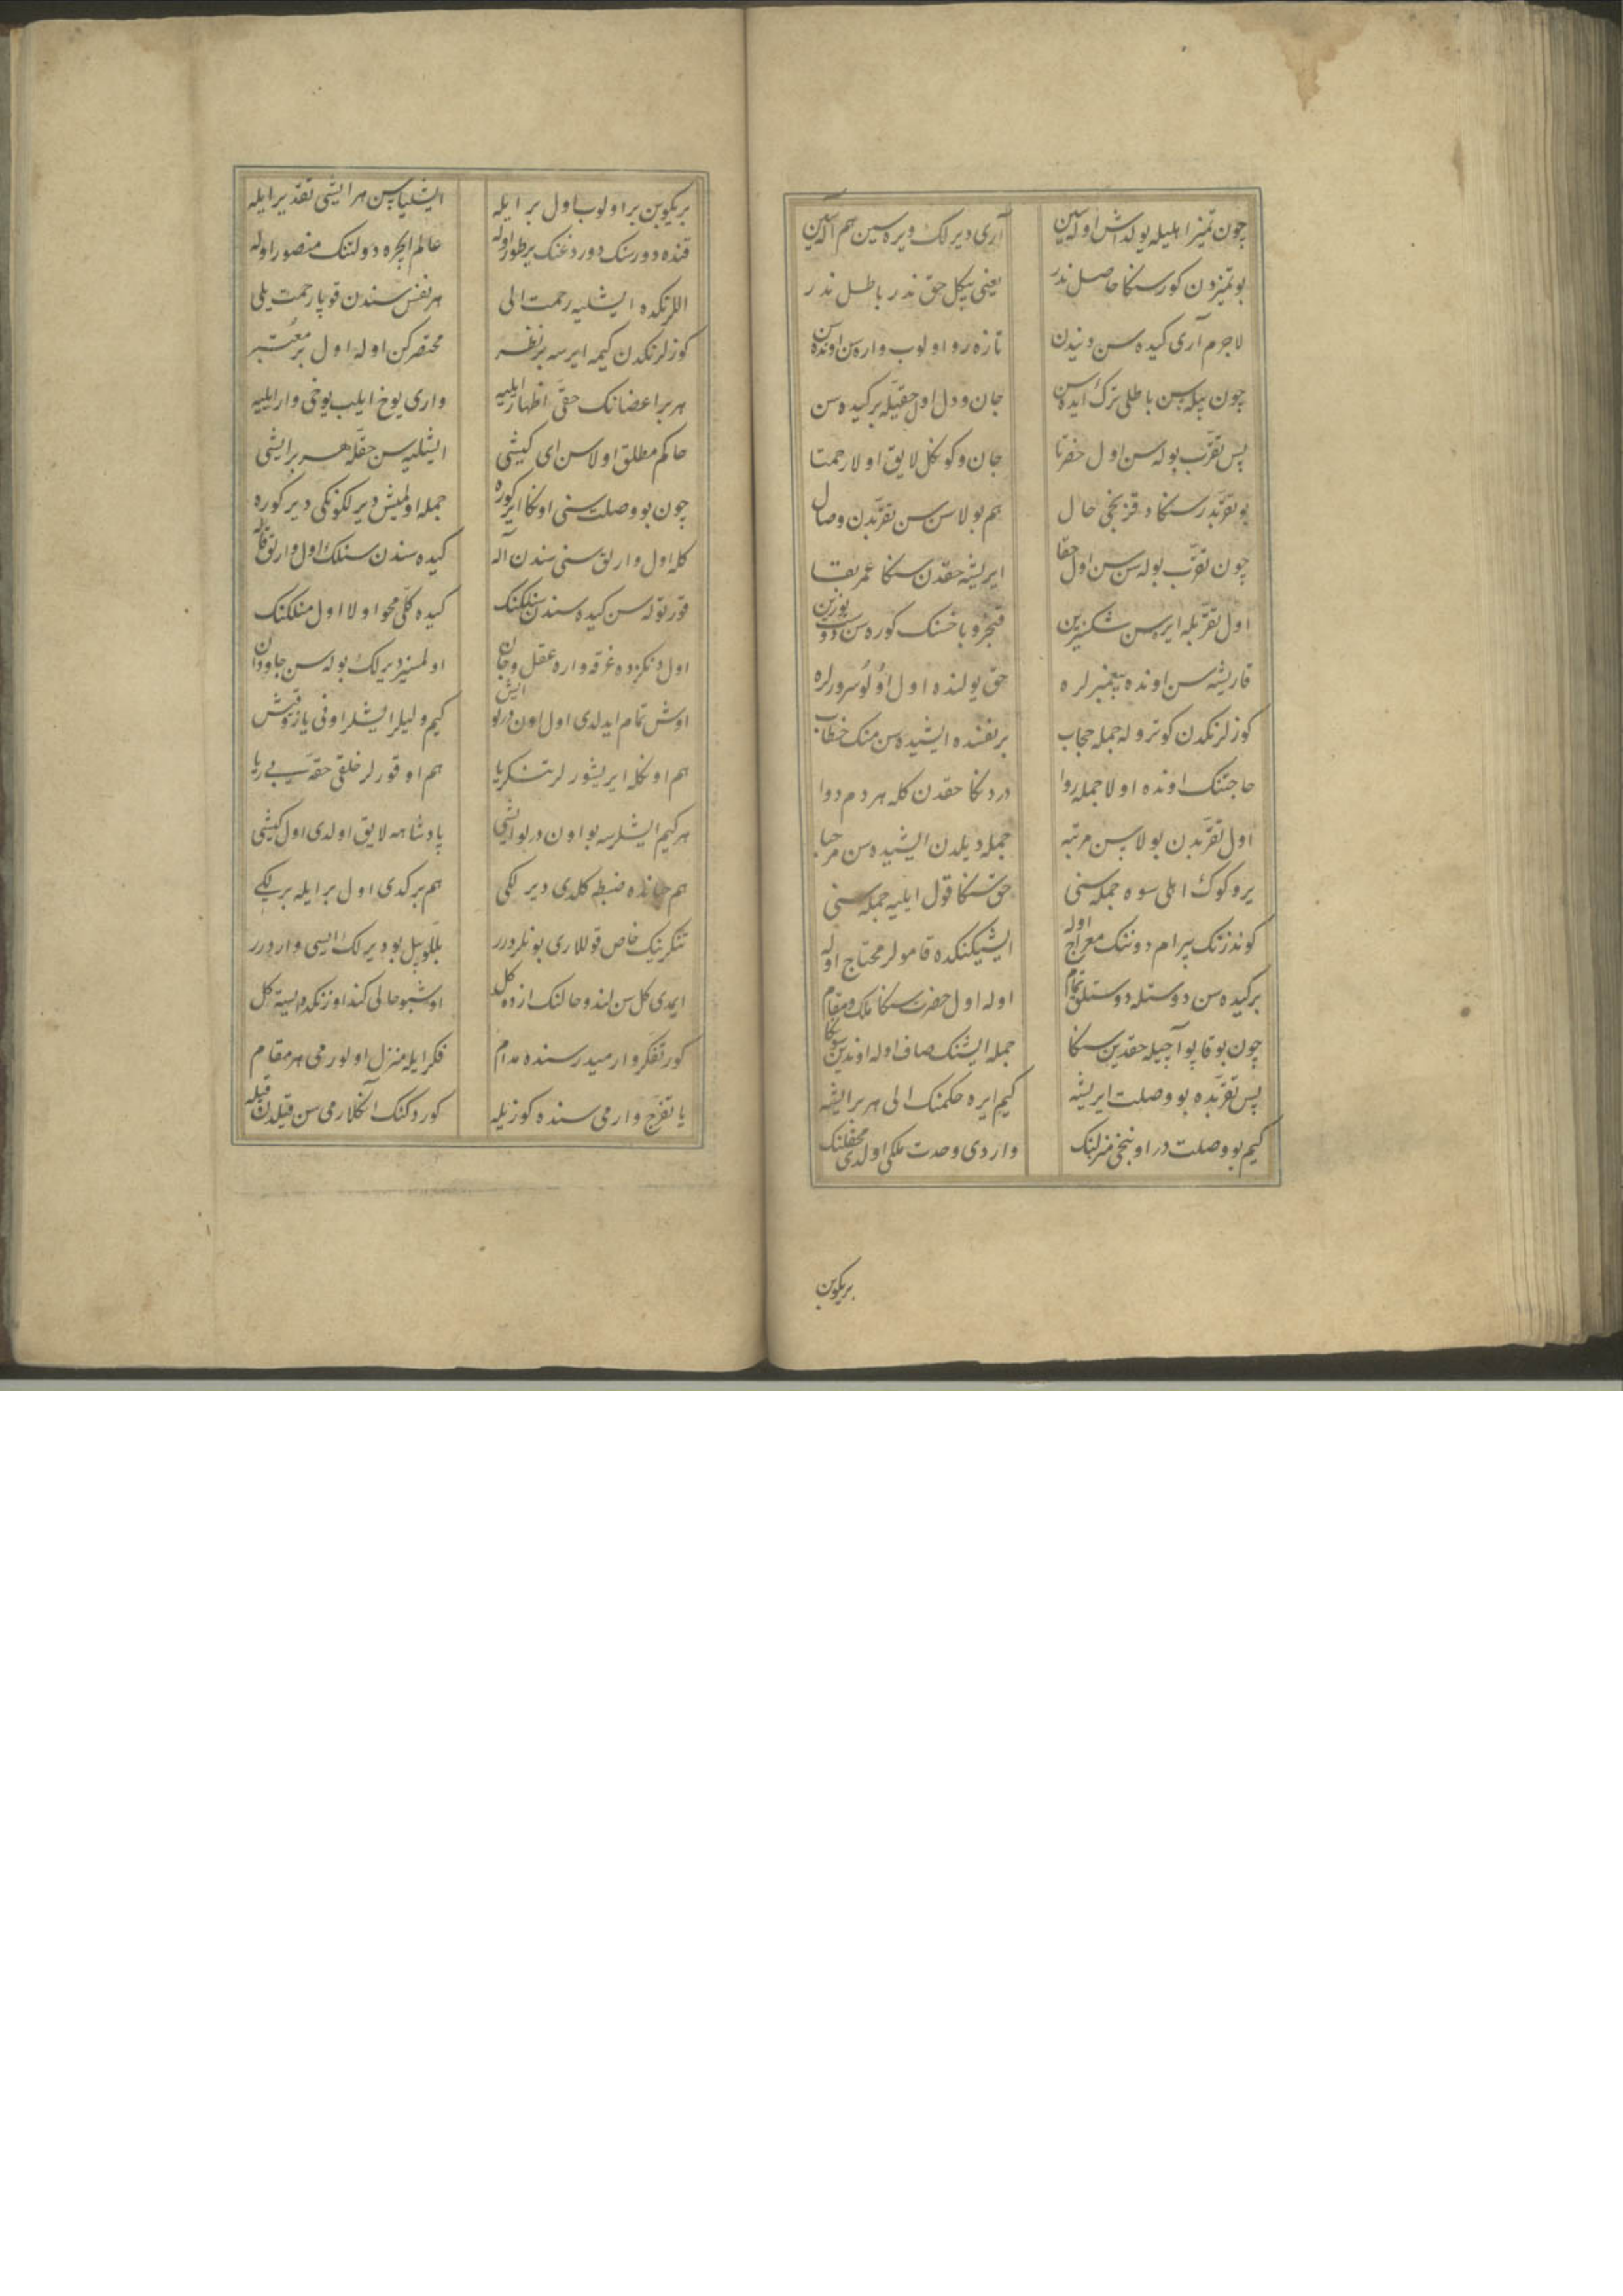 چون تمیز اهلیله یولداش اوله‌سین آری دیرلک ویره‌سین هم آله‌سین
بو تمیزدن کور سنکا حاصل ندر یعنی بیکل حق ندر باطل ندر
لاجرم آری کیده‌سن دنیدن تازه رو اولوب واره‌سن اوندن
چون بیله‌سن باطلی ترک ایده‌سن جان و دل اول حقیله بر کیده‌سن
پس تقرّب بوله‌سن اول حضرتا جان و کوکل لایق اولا رحمتا
بو تقرّبدر سنکا دقزنجی حال هم بولاسن سن تقرّبدن وصال
چون تقرّب بوله‌سن سن اول حقا ایریشه حقدن سنکا عمر بقا
اول تقرّبله ایرسن شکسزین قنجرو باخسنک کوره‌سن دوست یوزین
قاریشه‌سن اونده پیغمبرلره حق یولنده اول اُولُو سرورلره
کوزلرنکدن کوتروله جمله حجاب بر نفسده ایشیده‌سن منک خطاب
حاجتنک اونده اولا جمله روا دردنکا حقدن کله هر دم دوا
اول تقرّبدن بولاسن مرتبه جمله دیلدن ایشیده‌سن مرحبا
یر و کوک اهلی سوه جمله سنی حق سنکا قول ایلیه جمله سنی
کوندزنک بیرام دوننک معراج اوله ایشیکنکده قامولر محتاج اوله
بر کیده‌سن دوستله دوستلق تمام اوله اول حضرت سنکا ملک و مقام
چون بو قاپو آچیله حقدین سنکا جمله ایشنک صاف اوله اوندین سونکا
پس تقرّبده بو وصلت ایریشه کیم ایره حکمنک الی هر بر ایشه
کیم بو وصلت در اوننجی منزلنک واردی وحدت ملکی اولدی محفلنک
بریکوبن
بریکوبن بر اولوب اول بر ایله ایشلیاسن هر ایشی تقدیر ایله
قنده دورسنک دوردغنک یر طور اوله عالم ایچره دولتنک منصور اوله
اللرنکده ایشلیه رحمت الی هر نفس سندن قوپا رحمت یلی
کوزلرنکدن کیمه ایرسه بر نظر محتصر کن اوله اول بر معتبر
هر بر اعضانک حقی اظهار ایلیه واری یوخ ایلیب یوخی وار ایلیه
حاکم مطلق اولاسن ای کیشی ایشلیه‌سن حقله هر بر ایشی
چون بو وصلت سنی اونکا ایرکوره جمله اولمیش دیرلکونکی دیرکوره
کله اول وارلق سنی سندن آله کیده سندن سنلک اول وارلق قاله
قورتوله‌سن کیده سندن سنلکنک کیده کلّی محو اولا اول منلکنک
اول دنکزده غرقه واره عقل و جان اولمسز دیرلک بوله‌سن جاودان
اوش تمام ایدلدی اول اون درلو ایش کیم ولیلر ایشلر اونی یاز و قیش
هم اونکله ایریشورلر تنکریا هم اوقورلر خلقی حقه بی ریا
هر کیم ایشلرسه بو اون درلو ایشی پادشاهه لایق اولدی اول کیشی
هم جانده ضبطه کلدی دیرلکی هم برکدی اول بر ایله برلکی
تنکرینک خاص قوللاری بونلردرر بللو بیل بو دیرلک ایسی واردرر
ایمدی کل سن کندو حالنک ازده کل اوشبو حالی کند اوزنکده ایسته کل
کور تفکر وارمیدر سنده مدام فکر ایله منزل اولورمی هر مقام
یا تفرّج وارمی سنده کوزیله کوردکنک آنکلارمی سن قیلدن قیله